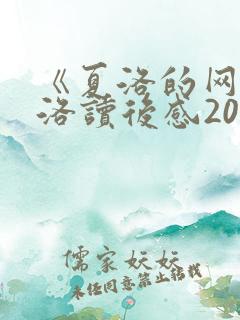 《夏洛的网
洛讀後感20
儒家妖妖
未任同意禁止转载